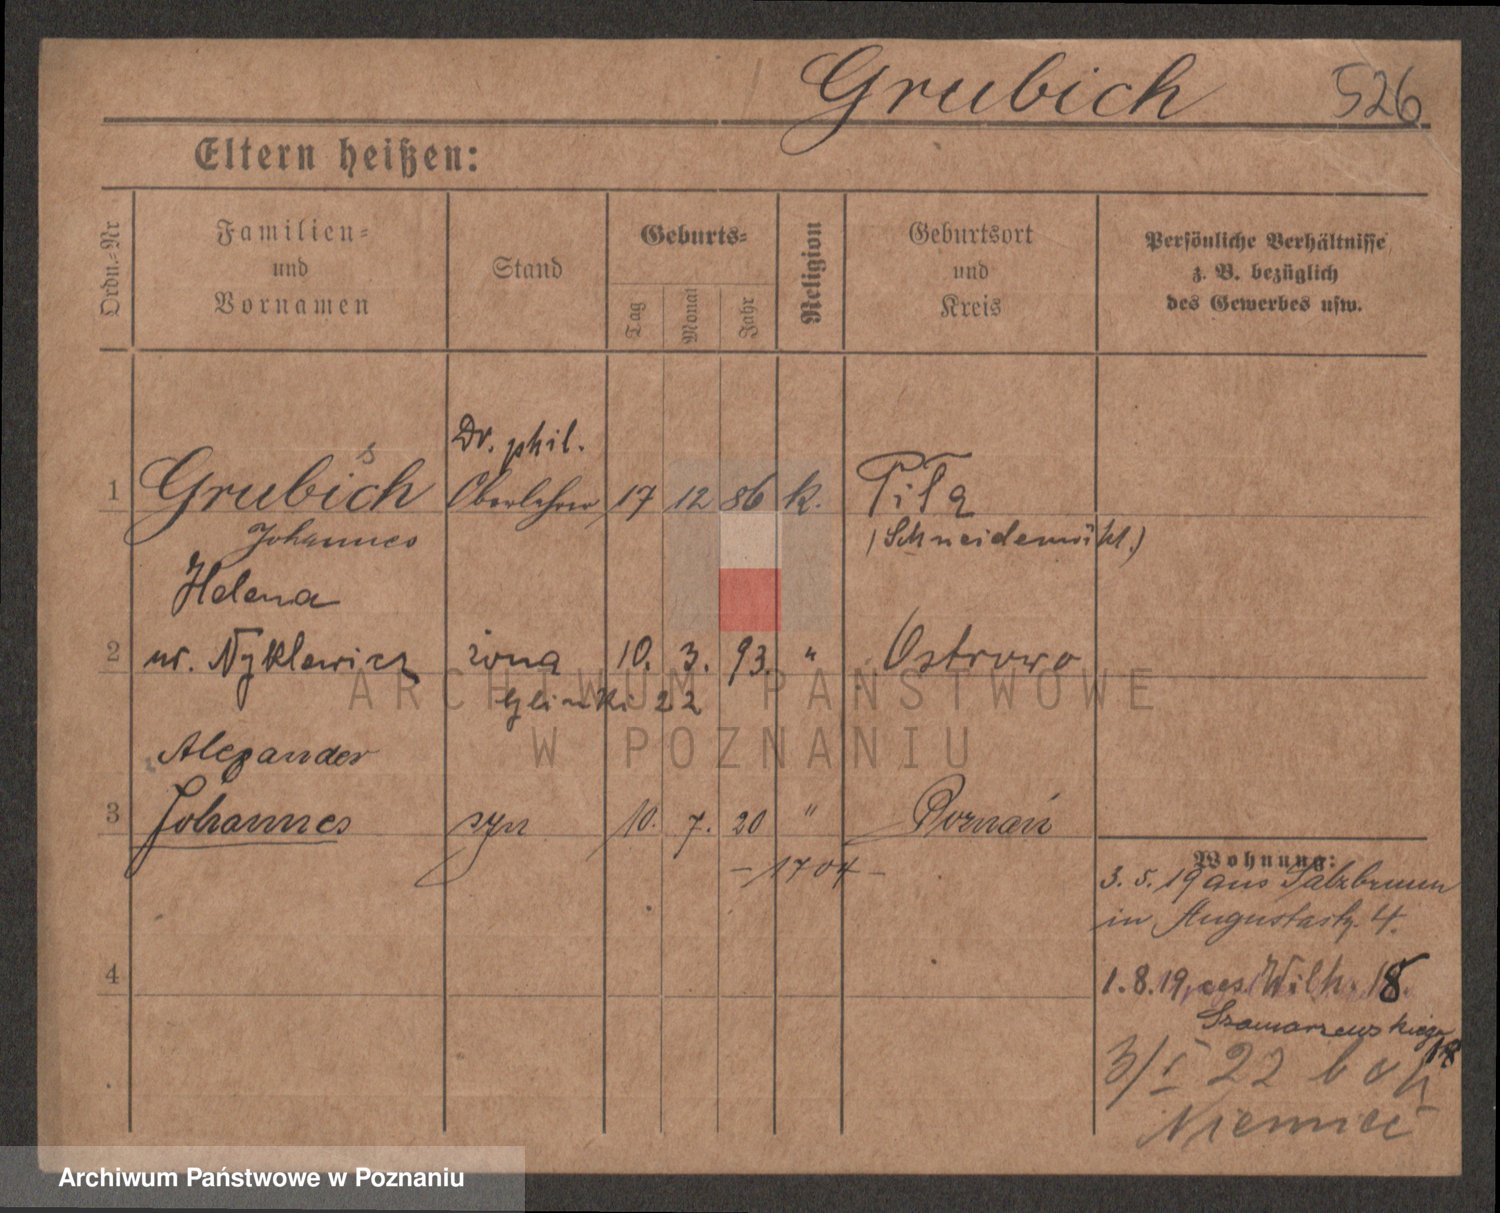 Grubich 526
Eltern heißen:
Ordn.-Nr
Familien-
und
Vornamen
Stand
Geburts-
Tag
Monat
Jahr
Religion
Geburtsort
und
Kreis
Persönliche Verhältnisse
z. B. bezüglich
des Gewerbes usw.
Dr. phil.
s
1 Grubich Oberlehrer 17 12 86 k. Piła
Johannes (Schneidemühl.)
Helena
2 ur. Nyklewicz żona 10. 3. 93. " Ostrowo
Glinki 22
Alexander
3 Johannes syn 10. 7. 20 " Poznań
- 1704 -
Wohnung:
3. 5. 19 aus Salzbrunn
in Augustastr. 4.
4
1. 8. 19, Wilh. 18.
Szamarzewskiego
18
3/I 22
Niemiec
ARCHIWUM PAŃSTWOWE
W POZNANIU
Archiwum Państwowe w Poznaniu